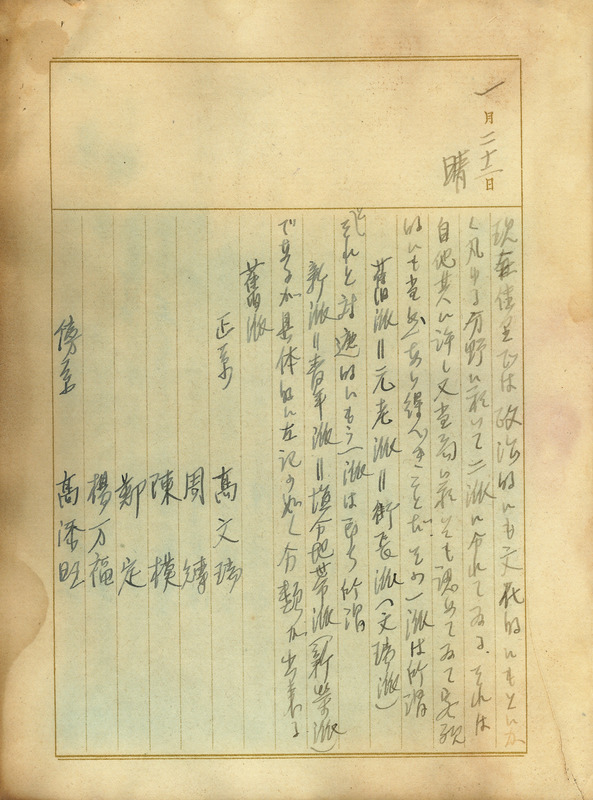 一月二十一日
晴
現在佳里では政治的にも文化的にもとにか
く凡ゆる分野に於いて二派に分れてゐる。それは
自他共に許し又当局に於いても認めてゐて客観
的にも当然あり得べきことだ。その一派は所謂
舊派=元老派=街長派(文瑞派)
それと対応的にもう一派は即ち所謂
新派=青年派=塩分地帯派(新榮派)
であるが具体的に左記の如く分類が出来る
舊派
正系
高文瑞
周
陳模
鄭定
楊万福
傍系
高添旺